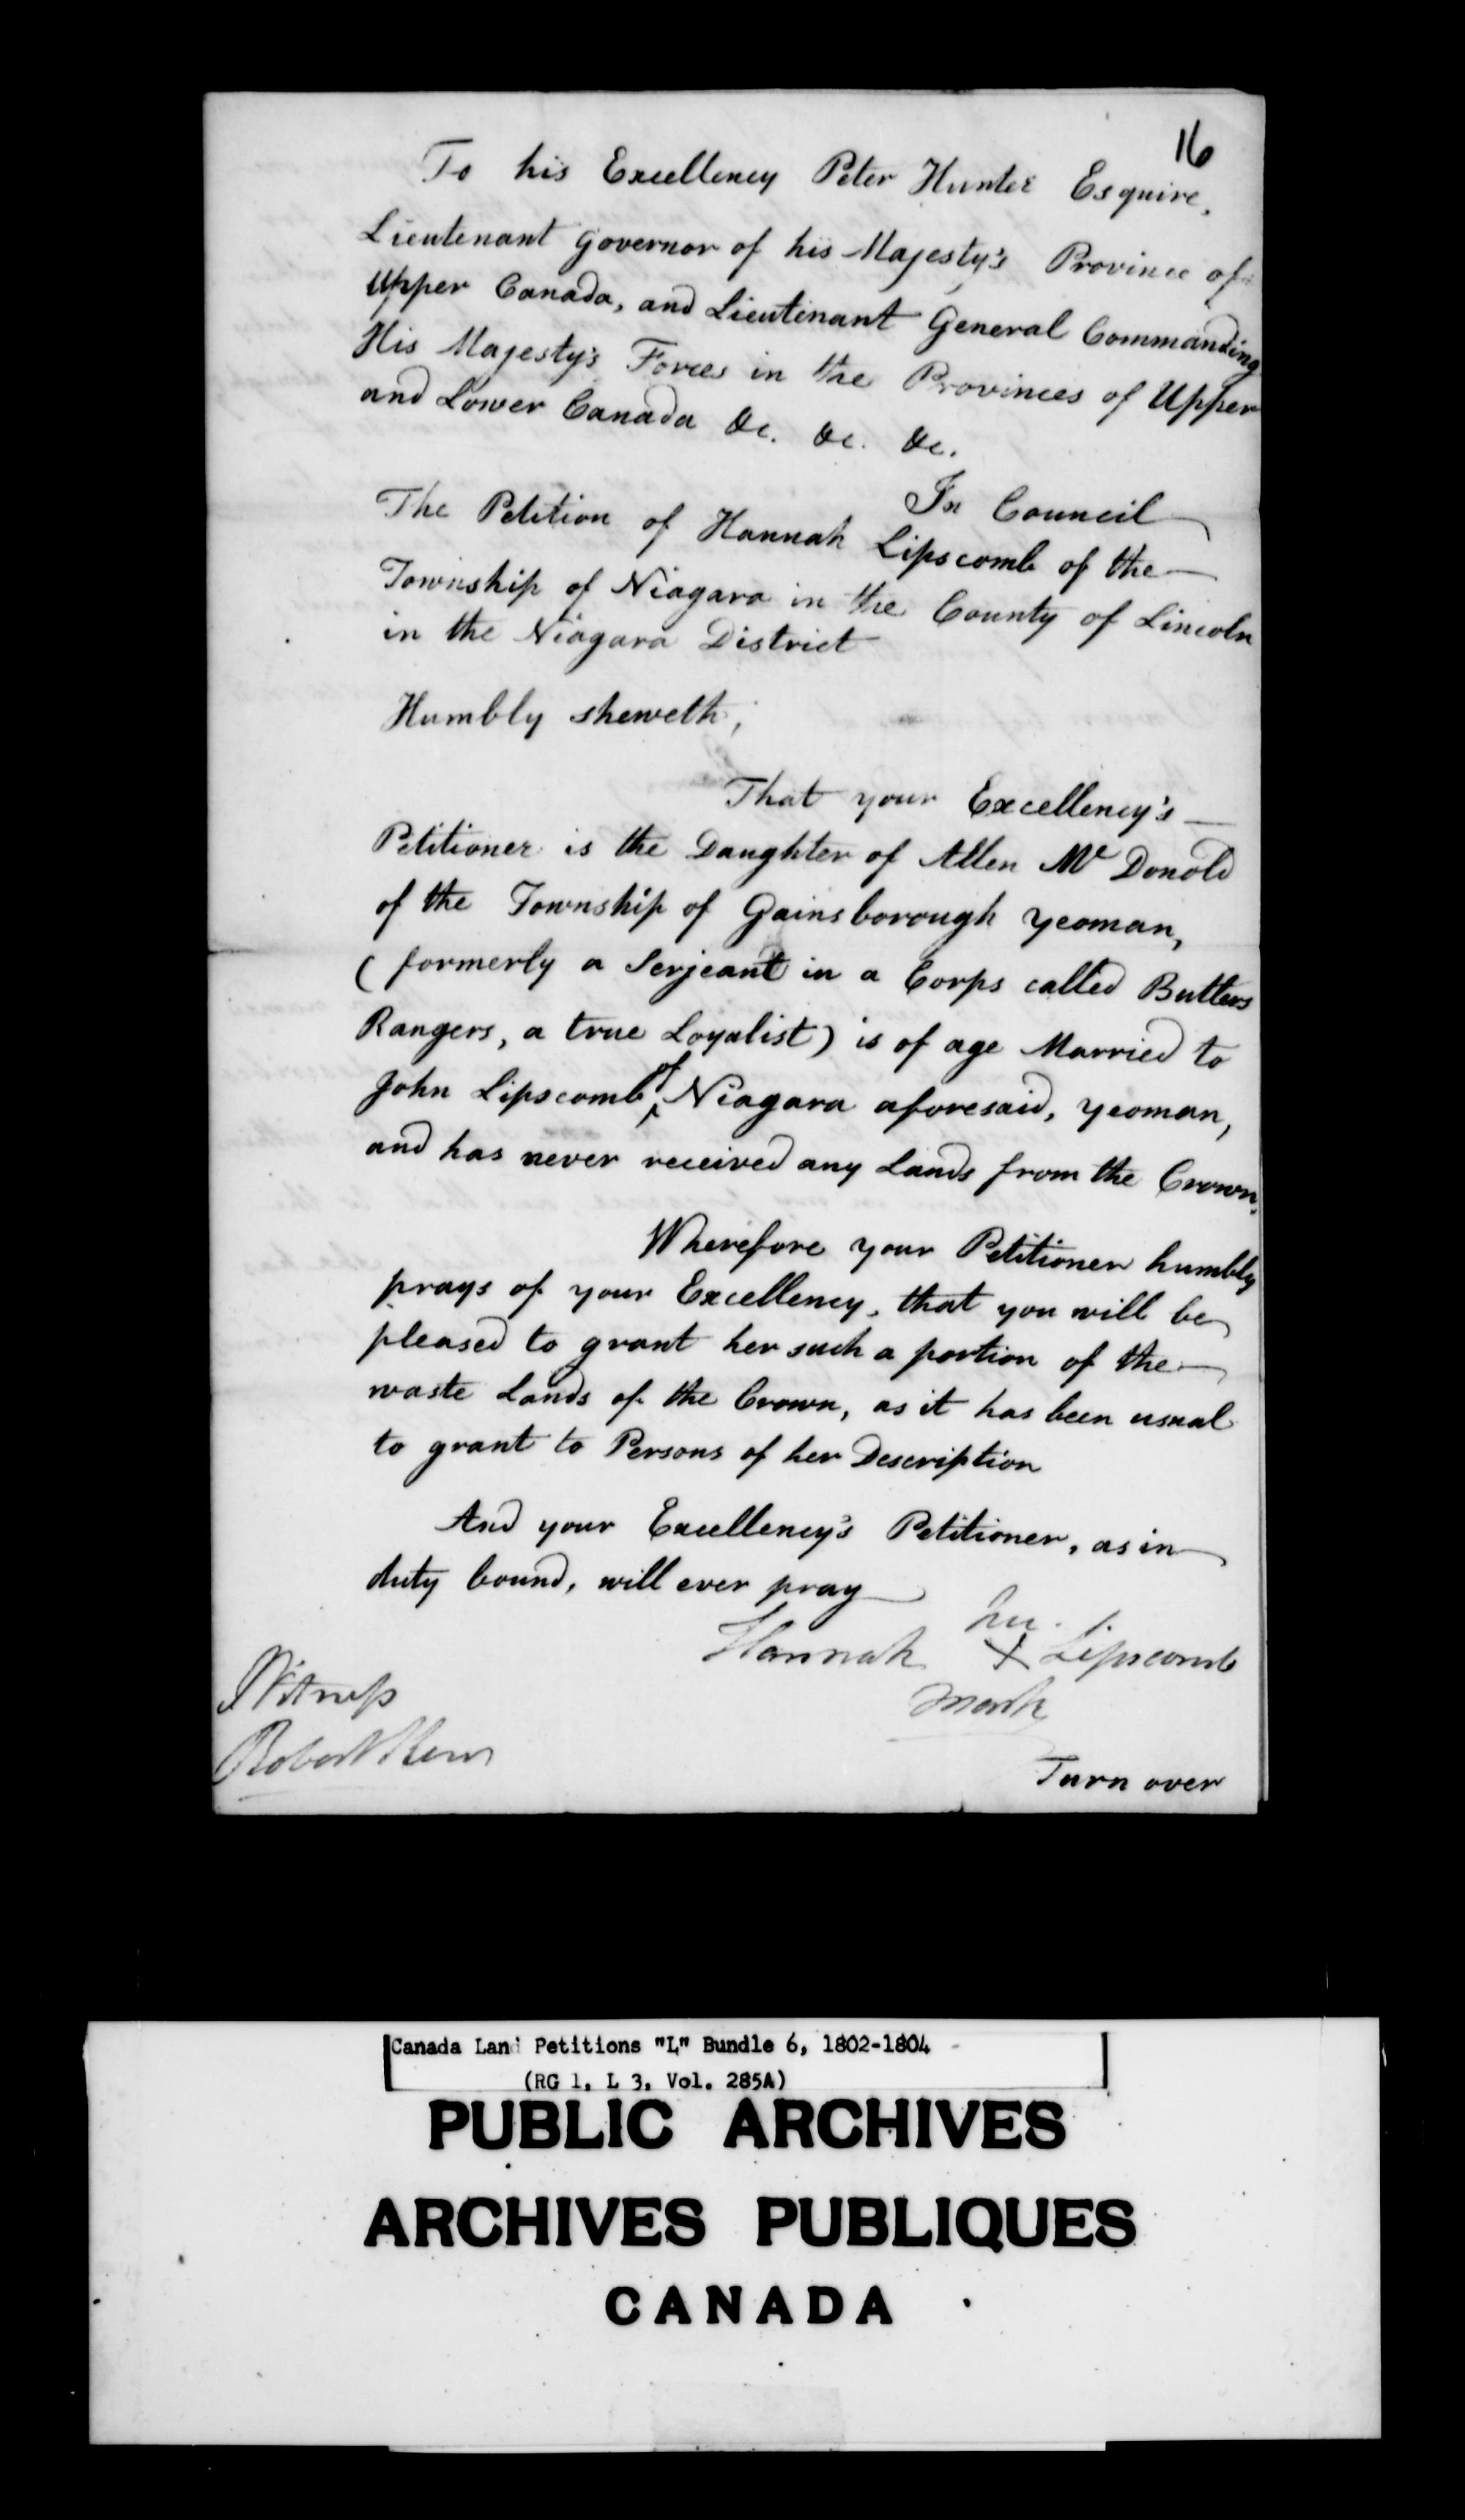 16
To his Excellency Peter Hunter Esquire,
Lieutenant Governor of his Majesty's Province of
Upper Canada, and Lieutenant General Commanding
His Majesty's Forces in the Provinces of Upper
and Lower Canada &c. &c. &c.
In Council
The Petition of Hannah Lipscomb of the
Township of Niagara in the County of Lincoln
in the Niagara District
Humbly sheweth;
That your Excellency's
Petitioner is the Daughter of Allen Mc Donold
of the Township of Gainsborough yeoman,
( formerly a Serjeant in a Corps called Butlers
Rangers, a true Loyalist) is of age Married to
John Lipscomb of Niagara aforesaid, yeoman,
and has never received any Lands from the Crown.
Wherefore your Petitioner humbly
prays of your Excellency, that you will be
pleased to grant her such a portion of the
waste Lands of the Crown, as it has been usual
to grant to Persons of her Description
And your Excellency's Petitioner, as in
duty bound, will ever pray
her
Hannah X Lipscomb
mark
Witness
Robert Kerr
Turn over
Canada Land Petitions "L" Bundle 6, 1802-1804
(RG 1, L 3, Vol. 285A)
PUBLIC ARCHIVES
ARCHIVES PUBLIQUES
CANADA